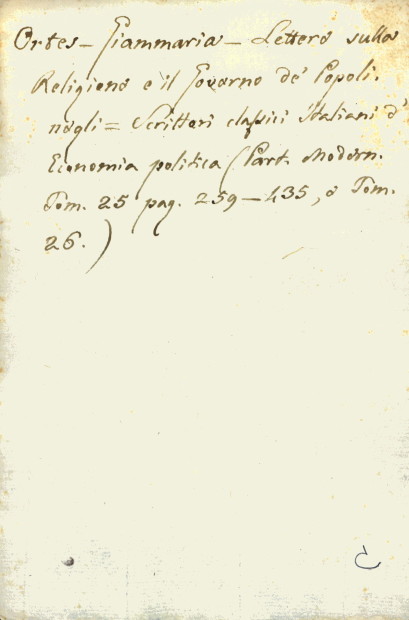 Ortes - Giammaria - Lettere sulla
Religione e il Governo de' Popoli.
negli = Scrittori classici Italiani d'
Economia politica (Part. Modern.
Tom. 25 pag. 259-435, e Tom.
26.)